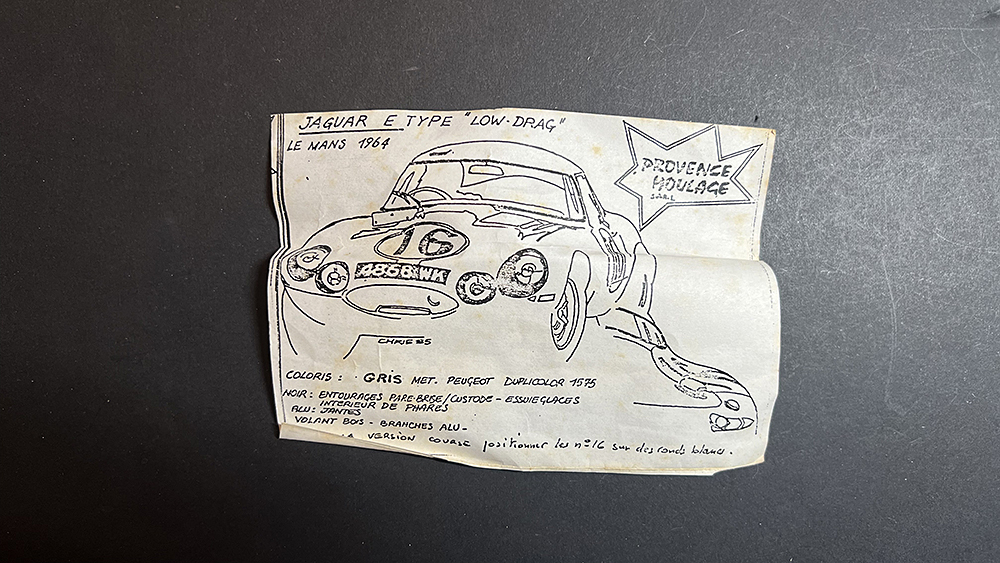 JAGUAR E TYPE "LOW-DRAG"
LE MANS 1964
PROVENCE
MOULAGE
S.A.R.L
16
4868 WK
COLORIS : GRIS MET. PEUGEOT DUPLICOLOR 1575
NOIR : ENTOURAGES PARE-BRISE/CUSTODE - ESSUIEGLACES
INTERIEUR DE PHARES
ALU : JANTES
VOLANT BOIS - BRANCHES ALU -
LA VERSION COURSE positionner les n° 16 sur des ronds blancs.